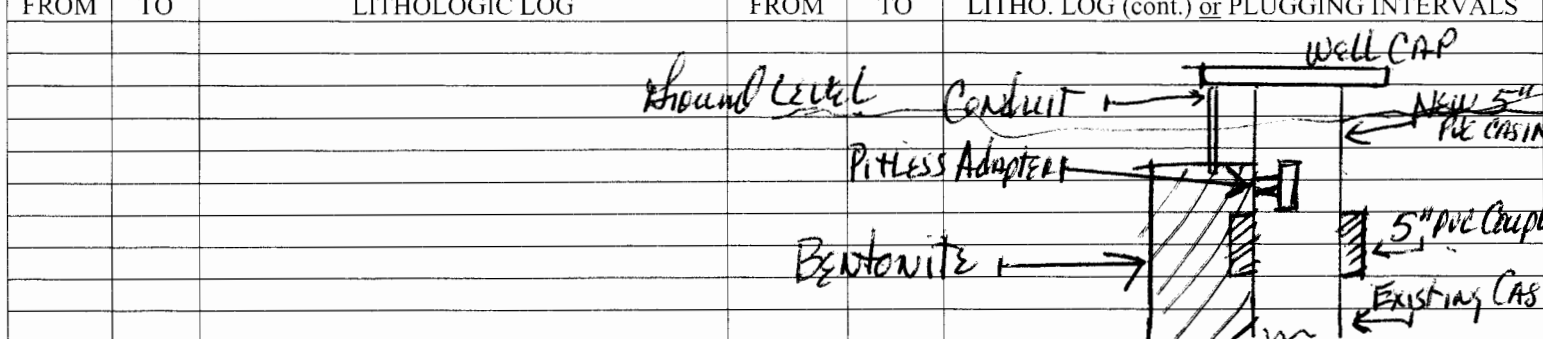 FROM TO LITHOLOGIC LOG FROM TO LITHO. LOG (cont.) or PLUGGING INTERVALS
WELL CAP
Ground LEVEL Conduit NEW 5"
PVC CASIN
PITLESS Adapter
5" PVC Coupl
BENTONITE
EXISTING CAS